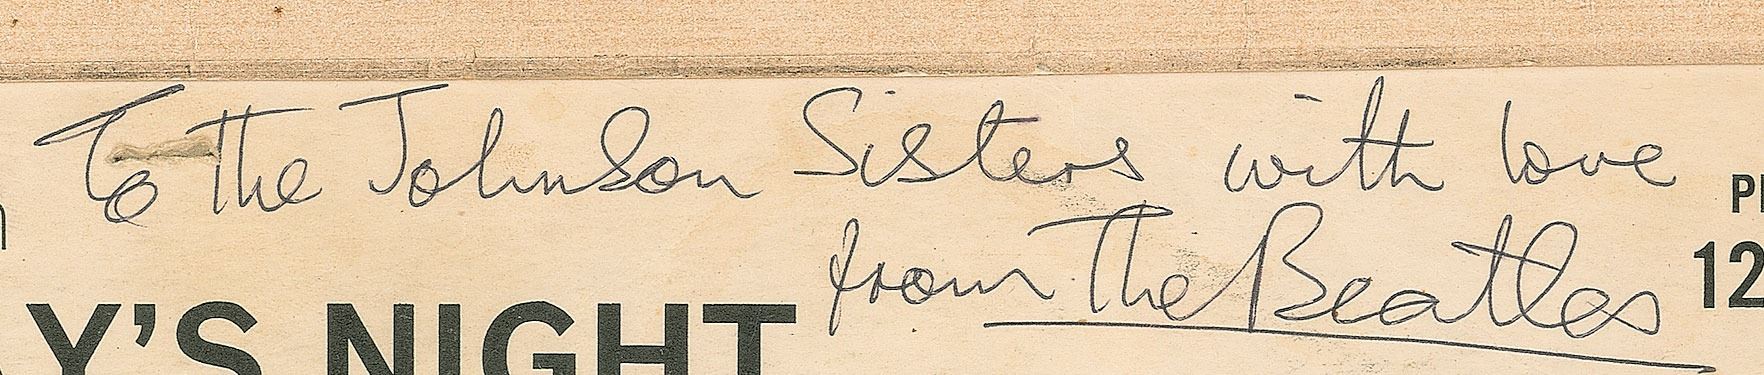 To the Johnson Sisters with love
from The Beatles
Y'S NIGHT
12